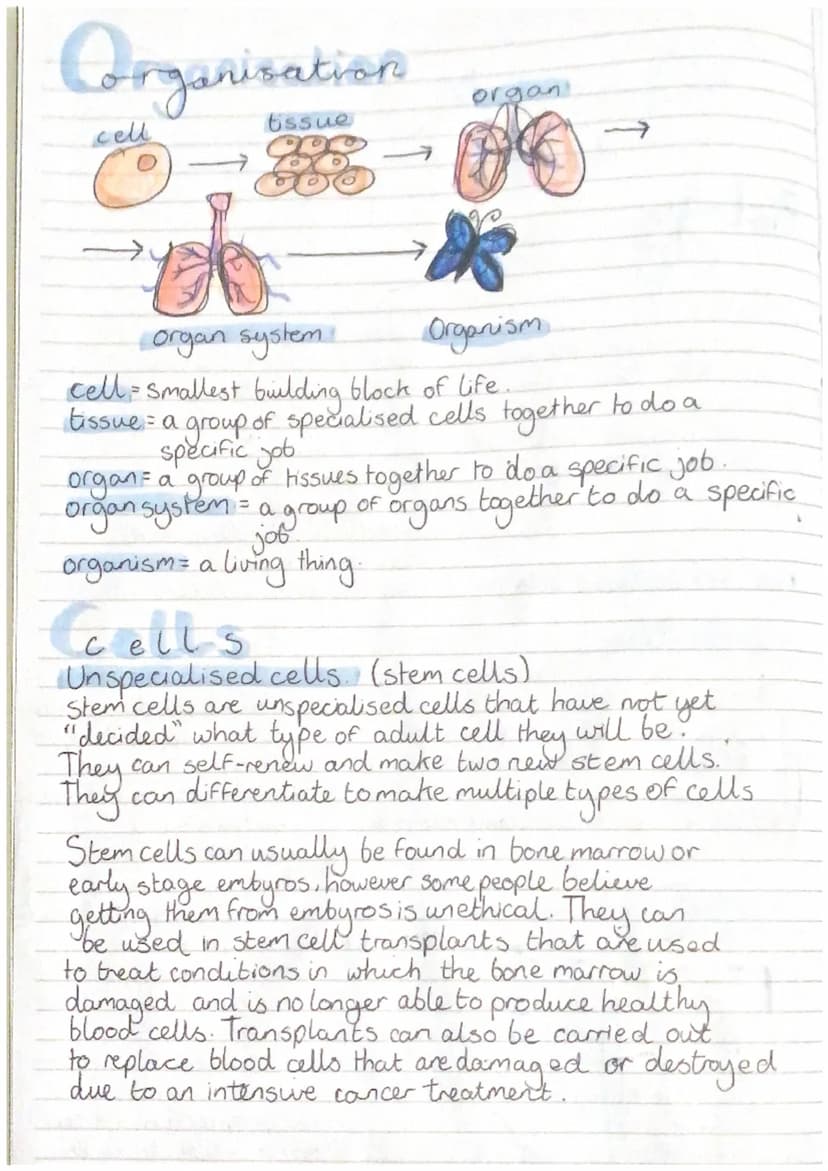 Organisation
cell
tissue
organ
organ system
Organism
cell = smallest building block of life.
tissue = a group of specialised cells together to do a
specific job
organ = a group of tissues together to do a specific job.
organ system = a group of organs together to do a specific
job.
organism = a living thing.
Cells
Unspecialised cells. (stem cells)
Stem cells are unspecialised cells that have not yet
"decided" what type of adult cell they will be.
They can self-renew and make two new stem cells.
They can differentiate to make multiple types of cells
Stem cells can usually be found in bone marrow or
early stage embyros, however some people believe
getting them from embyros is unethical. They can
be used in stem cell transplants that are used
to treat conditions in which the bone marrow is
damaged and is no longer able to produce healthy
blood cells. Transplants can also be carried out
to replace blood cells that are damaged or destroyed
due to an intensive cancer treatment.